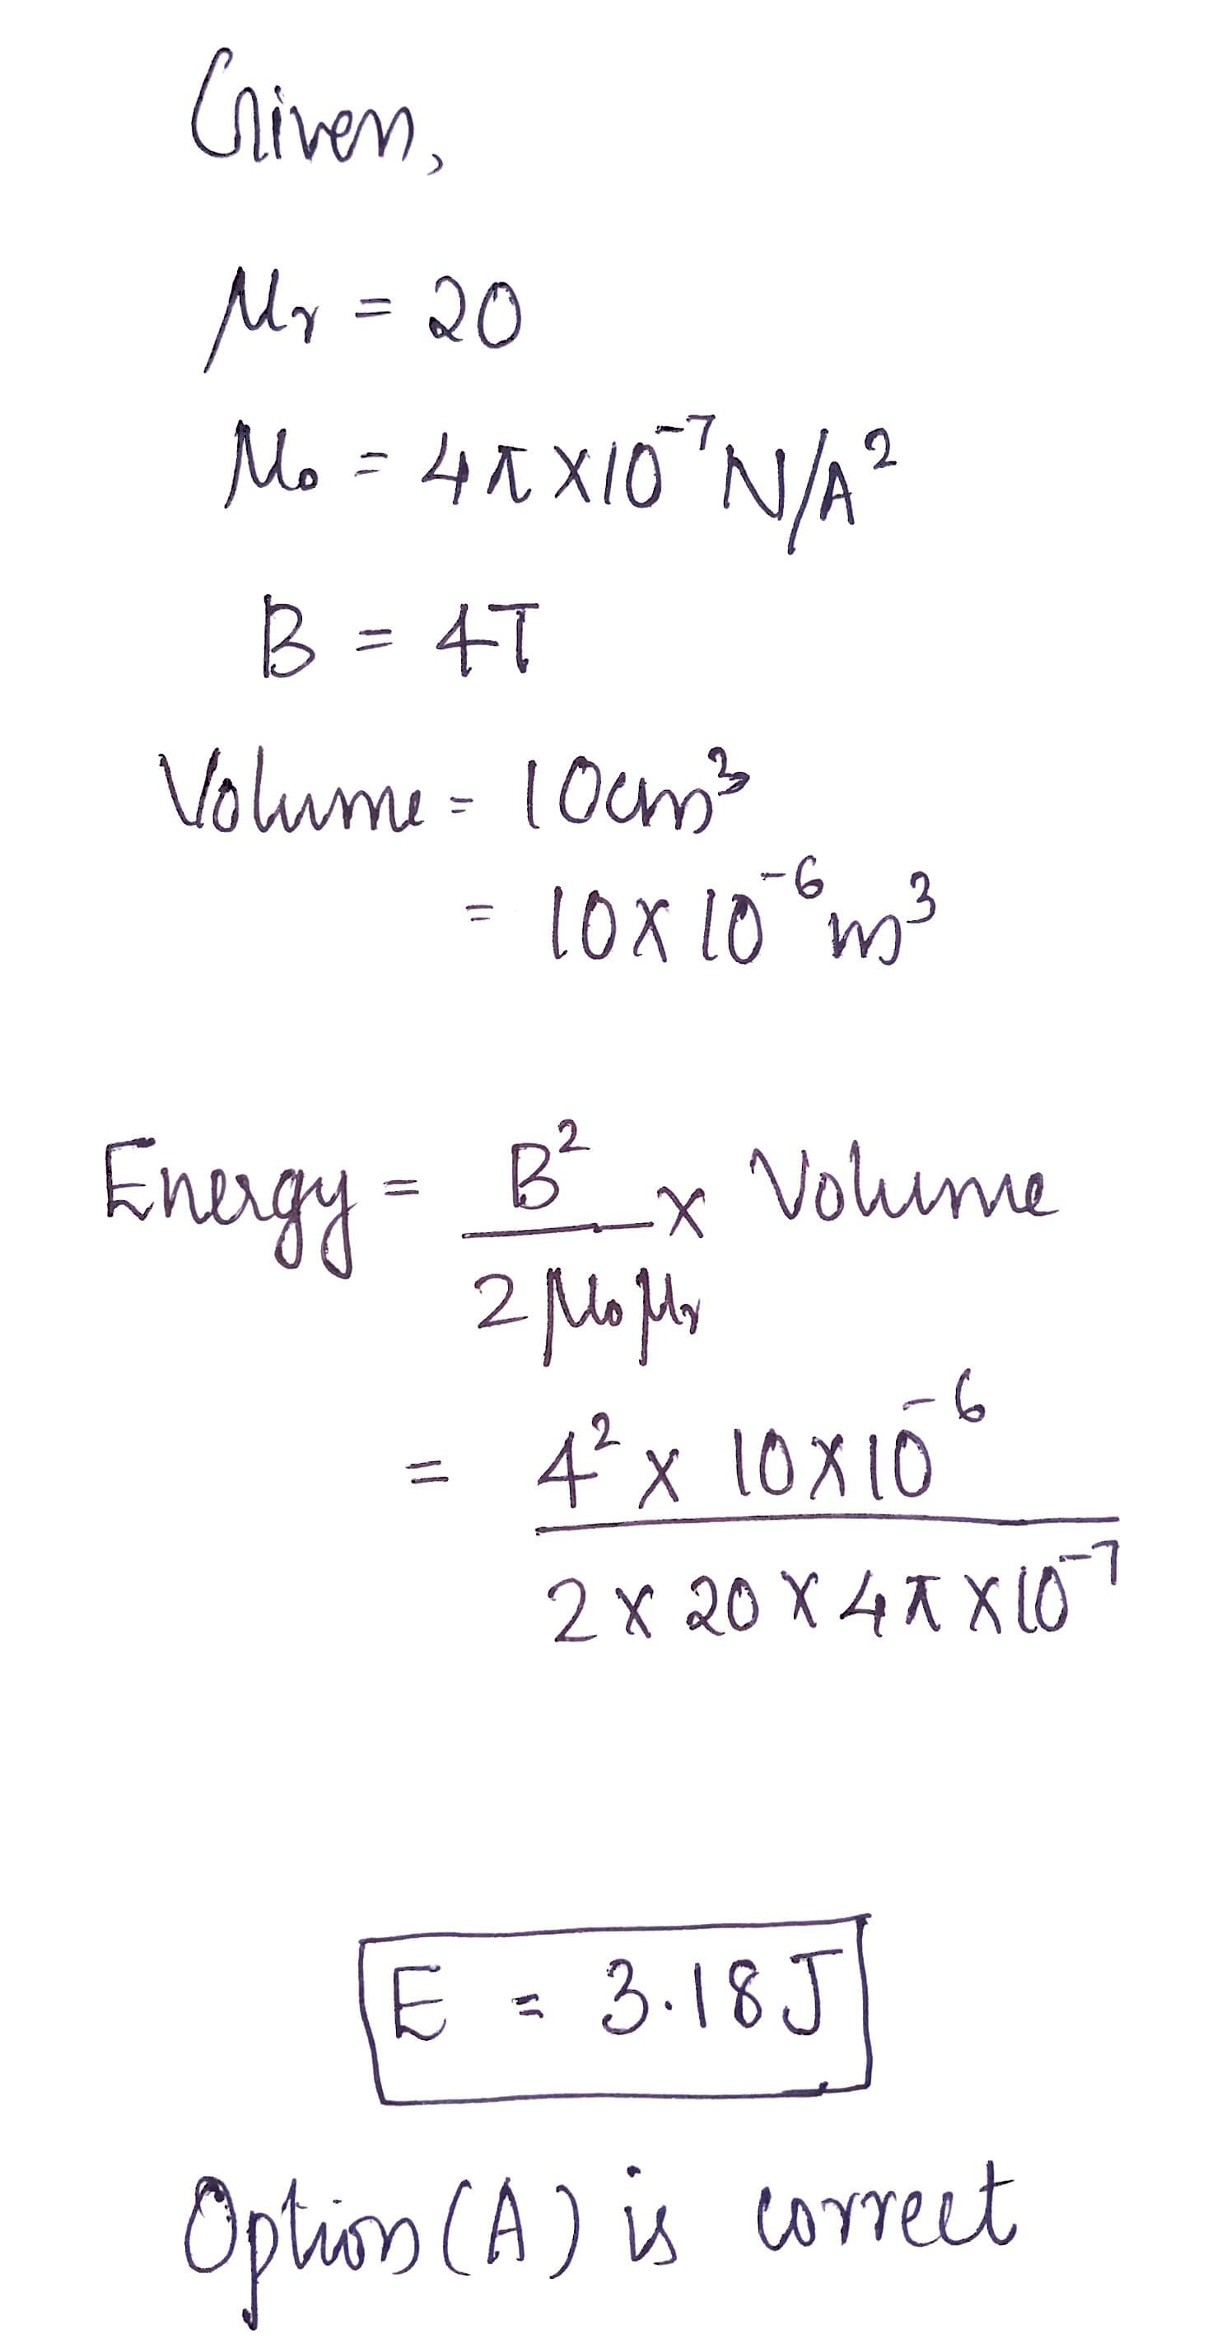 Given,
μr = 20
μ0 = 4π×10⁻⁷ N/A²
B = 4T
Volume = 10cm³
= 10×10⁻⁶ m³
Energy = B² / 2μ0μr × Volume
= 4² × 10×10⁻⁶ / 2×20×4π×10⁻⁷
E = 3.18J
Option (A) is correct